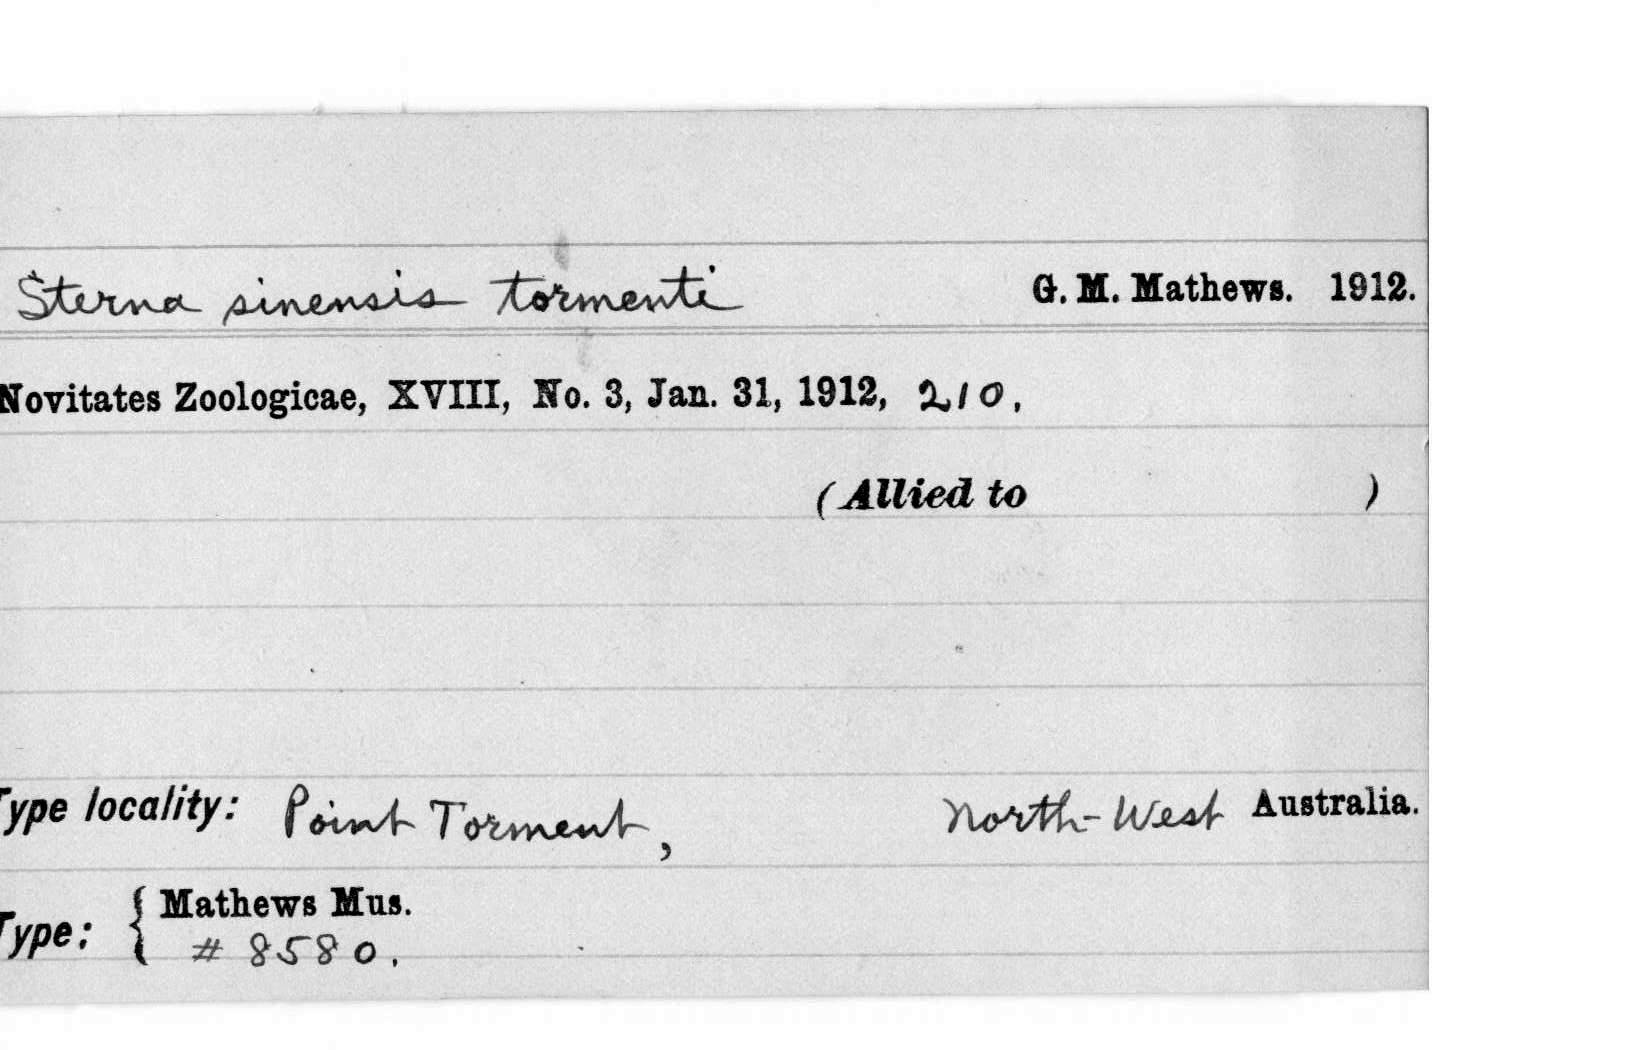 Sterna sinensis tormenti G. M. Mathews. 1912.
Novitates Zoologicae, XVIII, No. 3, Jan. 31, 1912, 210.
(Allied to )
Type locality: Point Torment, North-West Australia.
Type: { Mathews Mus.
# 8580.